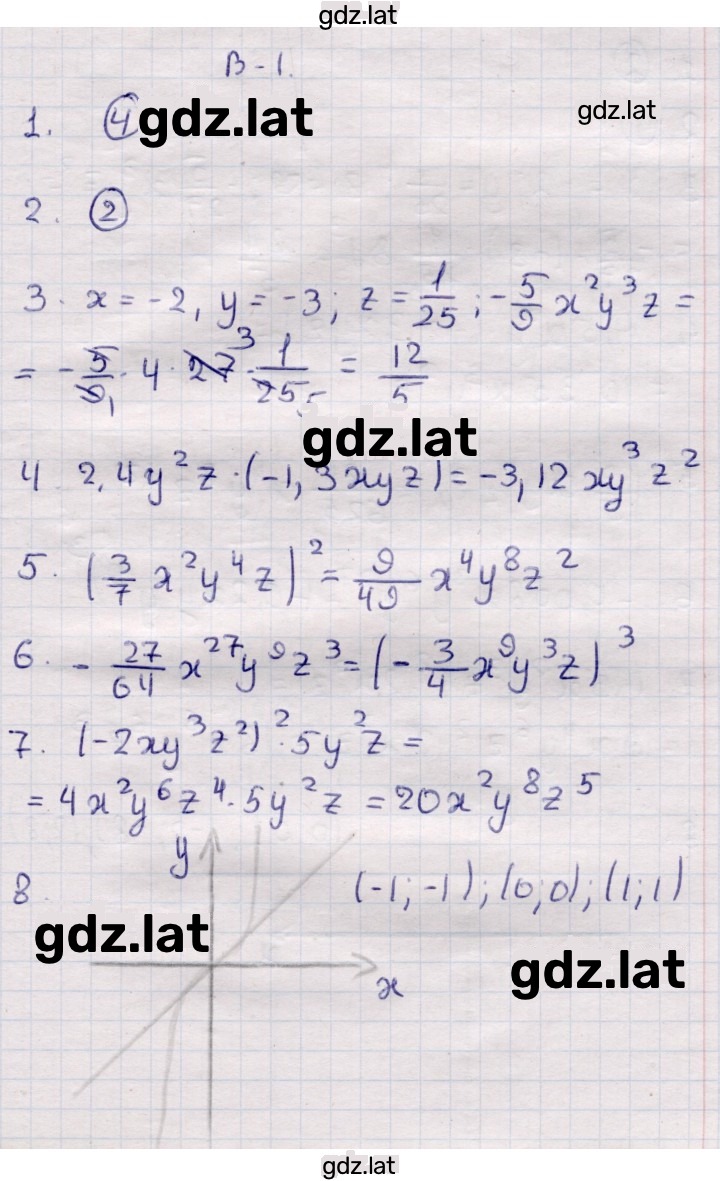 gdz.lat
В-1.
1. 4 gdz.lat gdz.lat
2. 2
3. x = -2, y = -3; z = 1/25; -5/9 x²y³z =
= -5/9 · 4 · 27 · 1/25 = 12/5
gdz.lat
4 2,4y²z·(-1,3xyz) = -3,12xy³z²
5. (3/7 x²y⁴z)² = 9/49 x⁴y⁸z²
6. -27/64 x²⁷y⁹z³ = (-3/4 x⁹y³z)³
7. (-2xy³z²)²·5y²z =
= 4x²y⁶z⁴·5y²z = 20x²y⁸z⁵
y
8. (-1; -1); (0; 0); (1; 1)
gdz.lat gdz.lat
x
gdz.lat